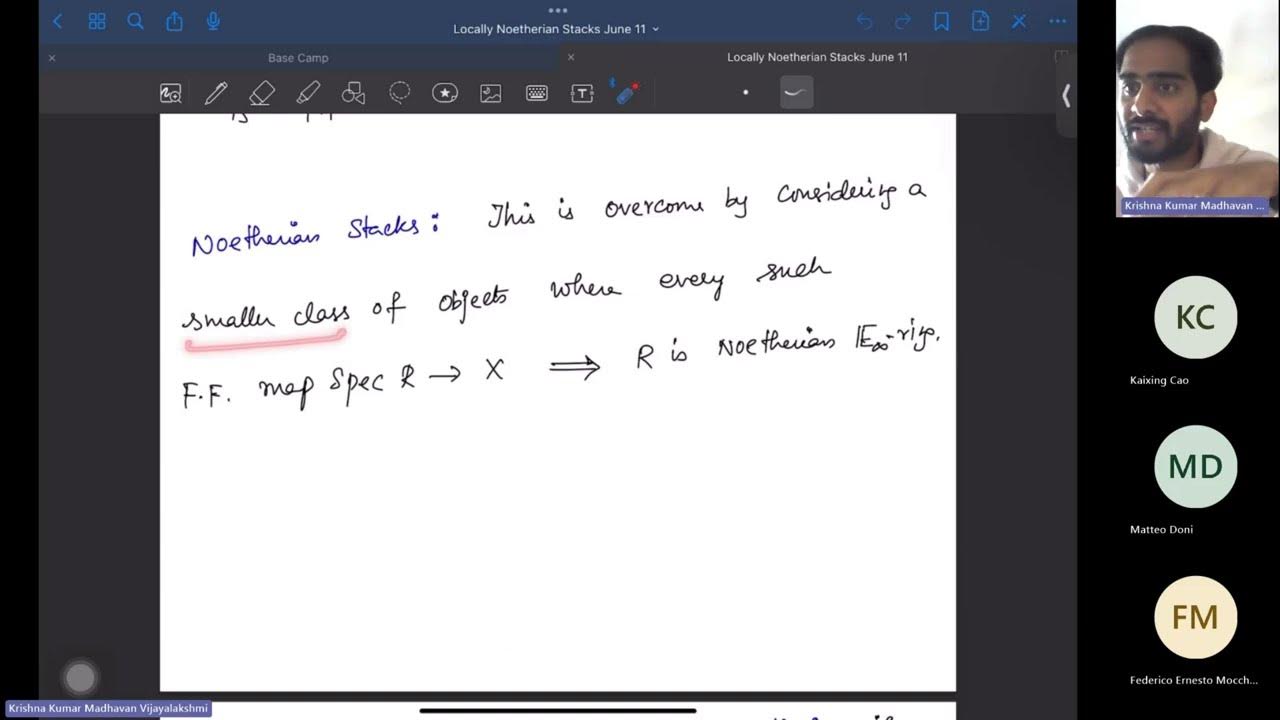 Locally Noetherian Stacks June 11
Base Camp
Locally Noetherian Stacks June 11
Noetherian Stacks: This is overcome by considering a
smaller class of objects where every such
F.F. map Spec R → X ⟹ R is Noetherian E∞-ring.
Krishna Kumar Madhavan ...
KC
Kaixing Cao
MD
Matteo Doni
FM
Federico Ernesto Mocch...
Krishna Kumar Madhavan Vijayalakshmi